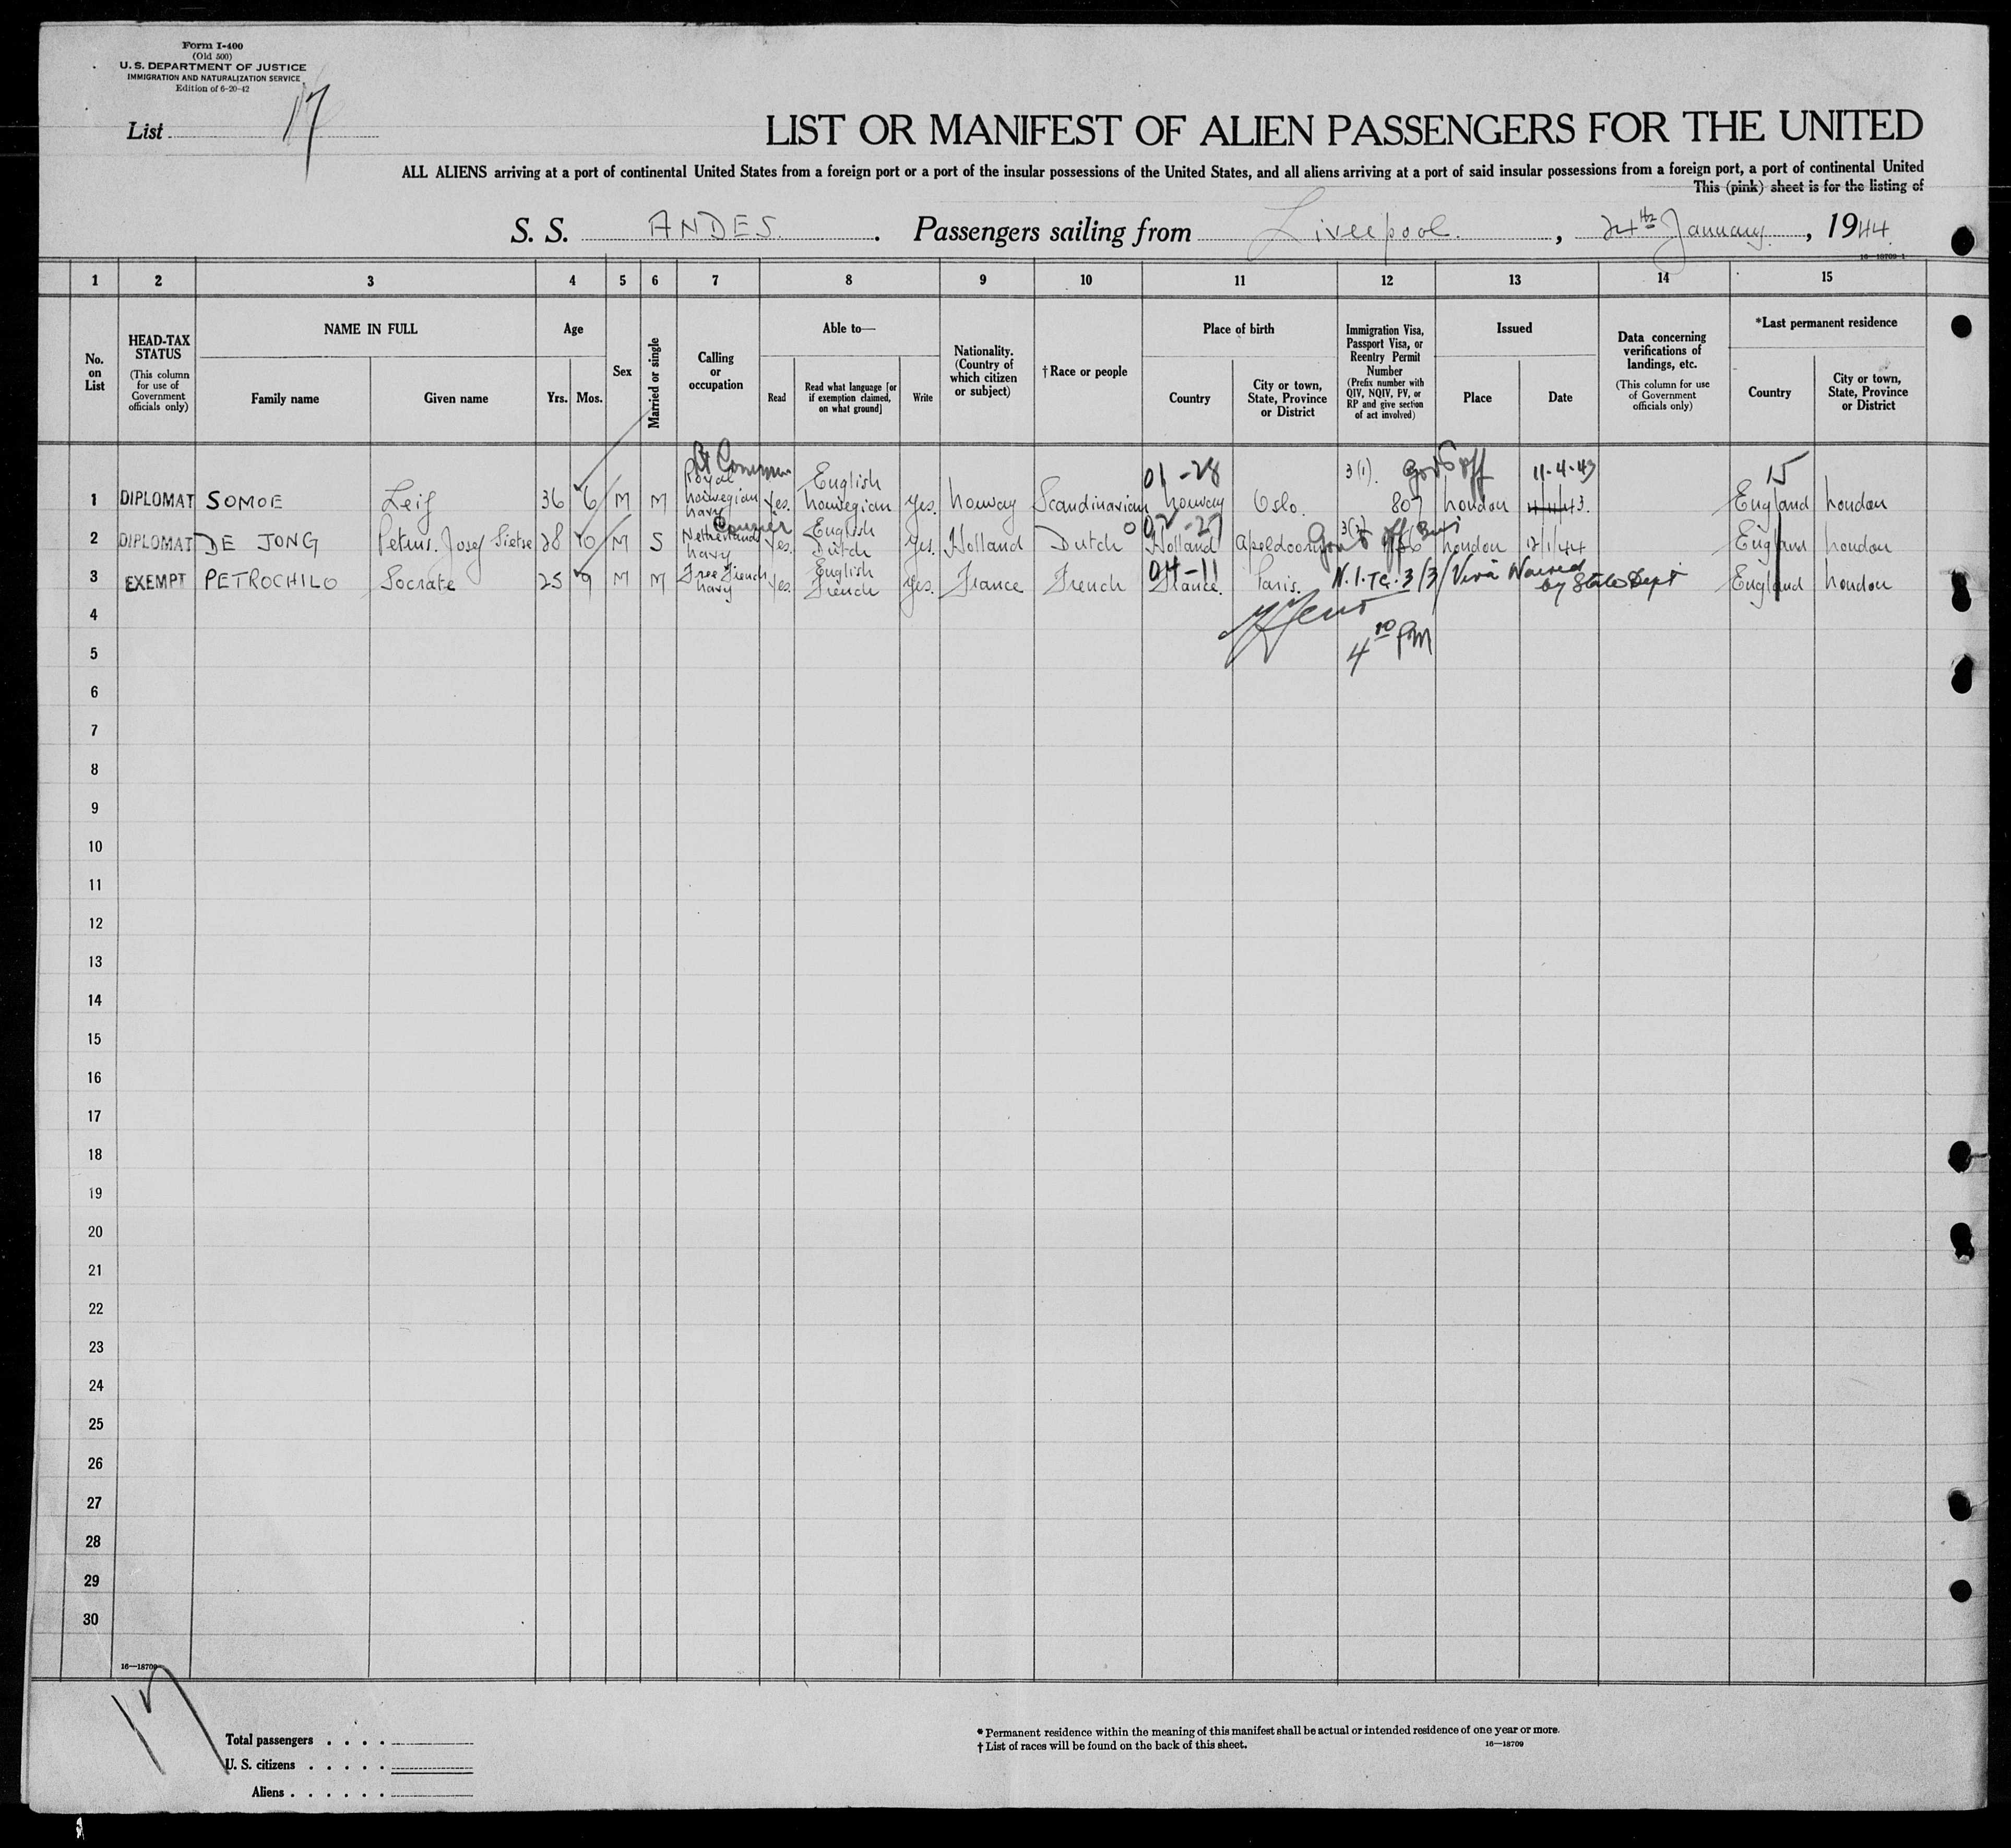 Form I-400
(Old 500)
U. S. DEPARTMENT OF JUSTICE
IMMIGRATION AND NATURALIZATION SERVICE
Edition of 6-20-42
List 17
LIST OR MANIFEST OF ALIEN PASSENGERS FOR THE UNITED
ALL ALIENS arriving at a port of continental United States from a foreign port or a port of the insular possessions of the United States, and all aliens arriving at a port of said insular possessions from a foreign port, a port of continental United
This (pink) sheet is for the listing of
S. S. ANDES. Passengers sailing from Liverpool, 24th January, 1944
16—18709-1
1 2 3 4 5 6 7 8 9 10 11 12 13 14 15
No. on List
HEAD-TAX STATUS
(This column for use of Government officials only)
NAME IN FULL
Family name
Given name
Age
Yrs. Mos.
Sex
Married or single
Calling or occupation
Able to—
Read
Read what language [or if exemption claimed, on what ground]
Write
Nationality. (Country of which citizen or subject)
† Race or people
Place of birth
Country
City or town, State, Province or District
Immigration Visa, Passport Visa, or Reentry Permit Number
(Prefix number with QIV, NQIV, PV, or RP and give section of act involved)
Issued
Place
Date
Data concerning verifications of landings, etc.
(This column for use of Government officials only)
*Last permanent residence
Country
City or town, State, Province or District
01-28 3(1). Gov't Off 11-4-43 15
1 DIPLOMAT SOMOE Leif 36 6 M M Royal Norwegian Navy Yes. English Norwegian Yes. Norway Scandinavian Norway Oslo. 807 London 4/11/43. England London
2 DIPLOMAT DE JONG Petrus. Josef Sietse 28 6 M S Courier Netherlands Navy Yes. English Dutch Yes. Holland Dutch Holland Apeldoorn Gov't Off London 12/1/44 England London
04-11
3 EXEMPT PETROCHILO Socrate 25 9 M M Free French Navy Yes. English French Yes. France French France. Paris. 3/3/ Visa Waived by State Dept England London
4
4 10 PM
5
6
7
8
9
10
11
12
13
14
15
16
17
18
19
20
21
22
23
24
25
26
27
28
29
30
16—18709
17
Total passengers . . . .
U. S. citizens . . . . .
Aliens . . . . . .
* Permanent residence within the meaning of this manifest shall be actual or intended residence of one year or more.
† List of races will be found on the back of this sheet.
16—18709